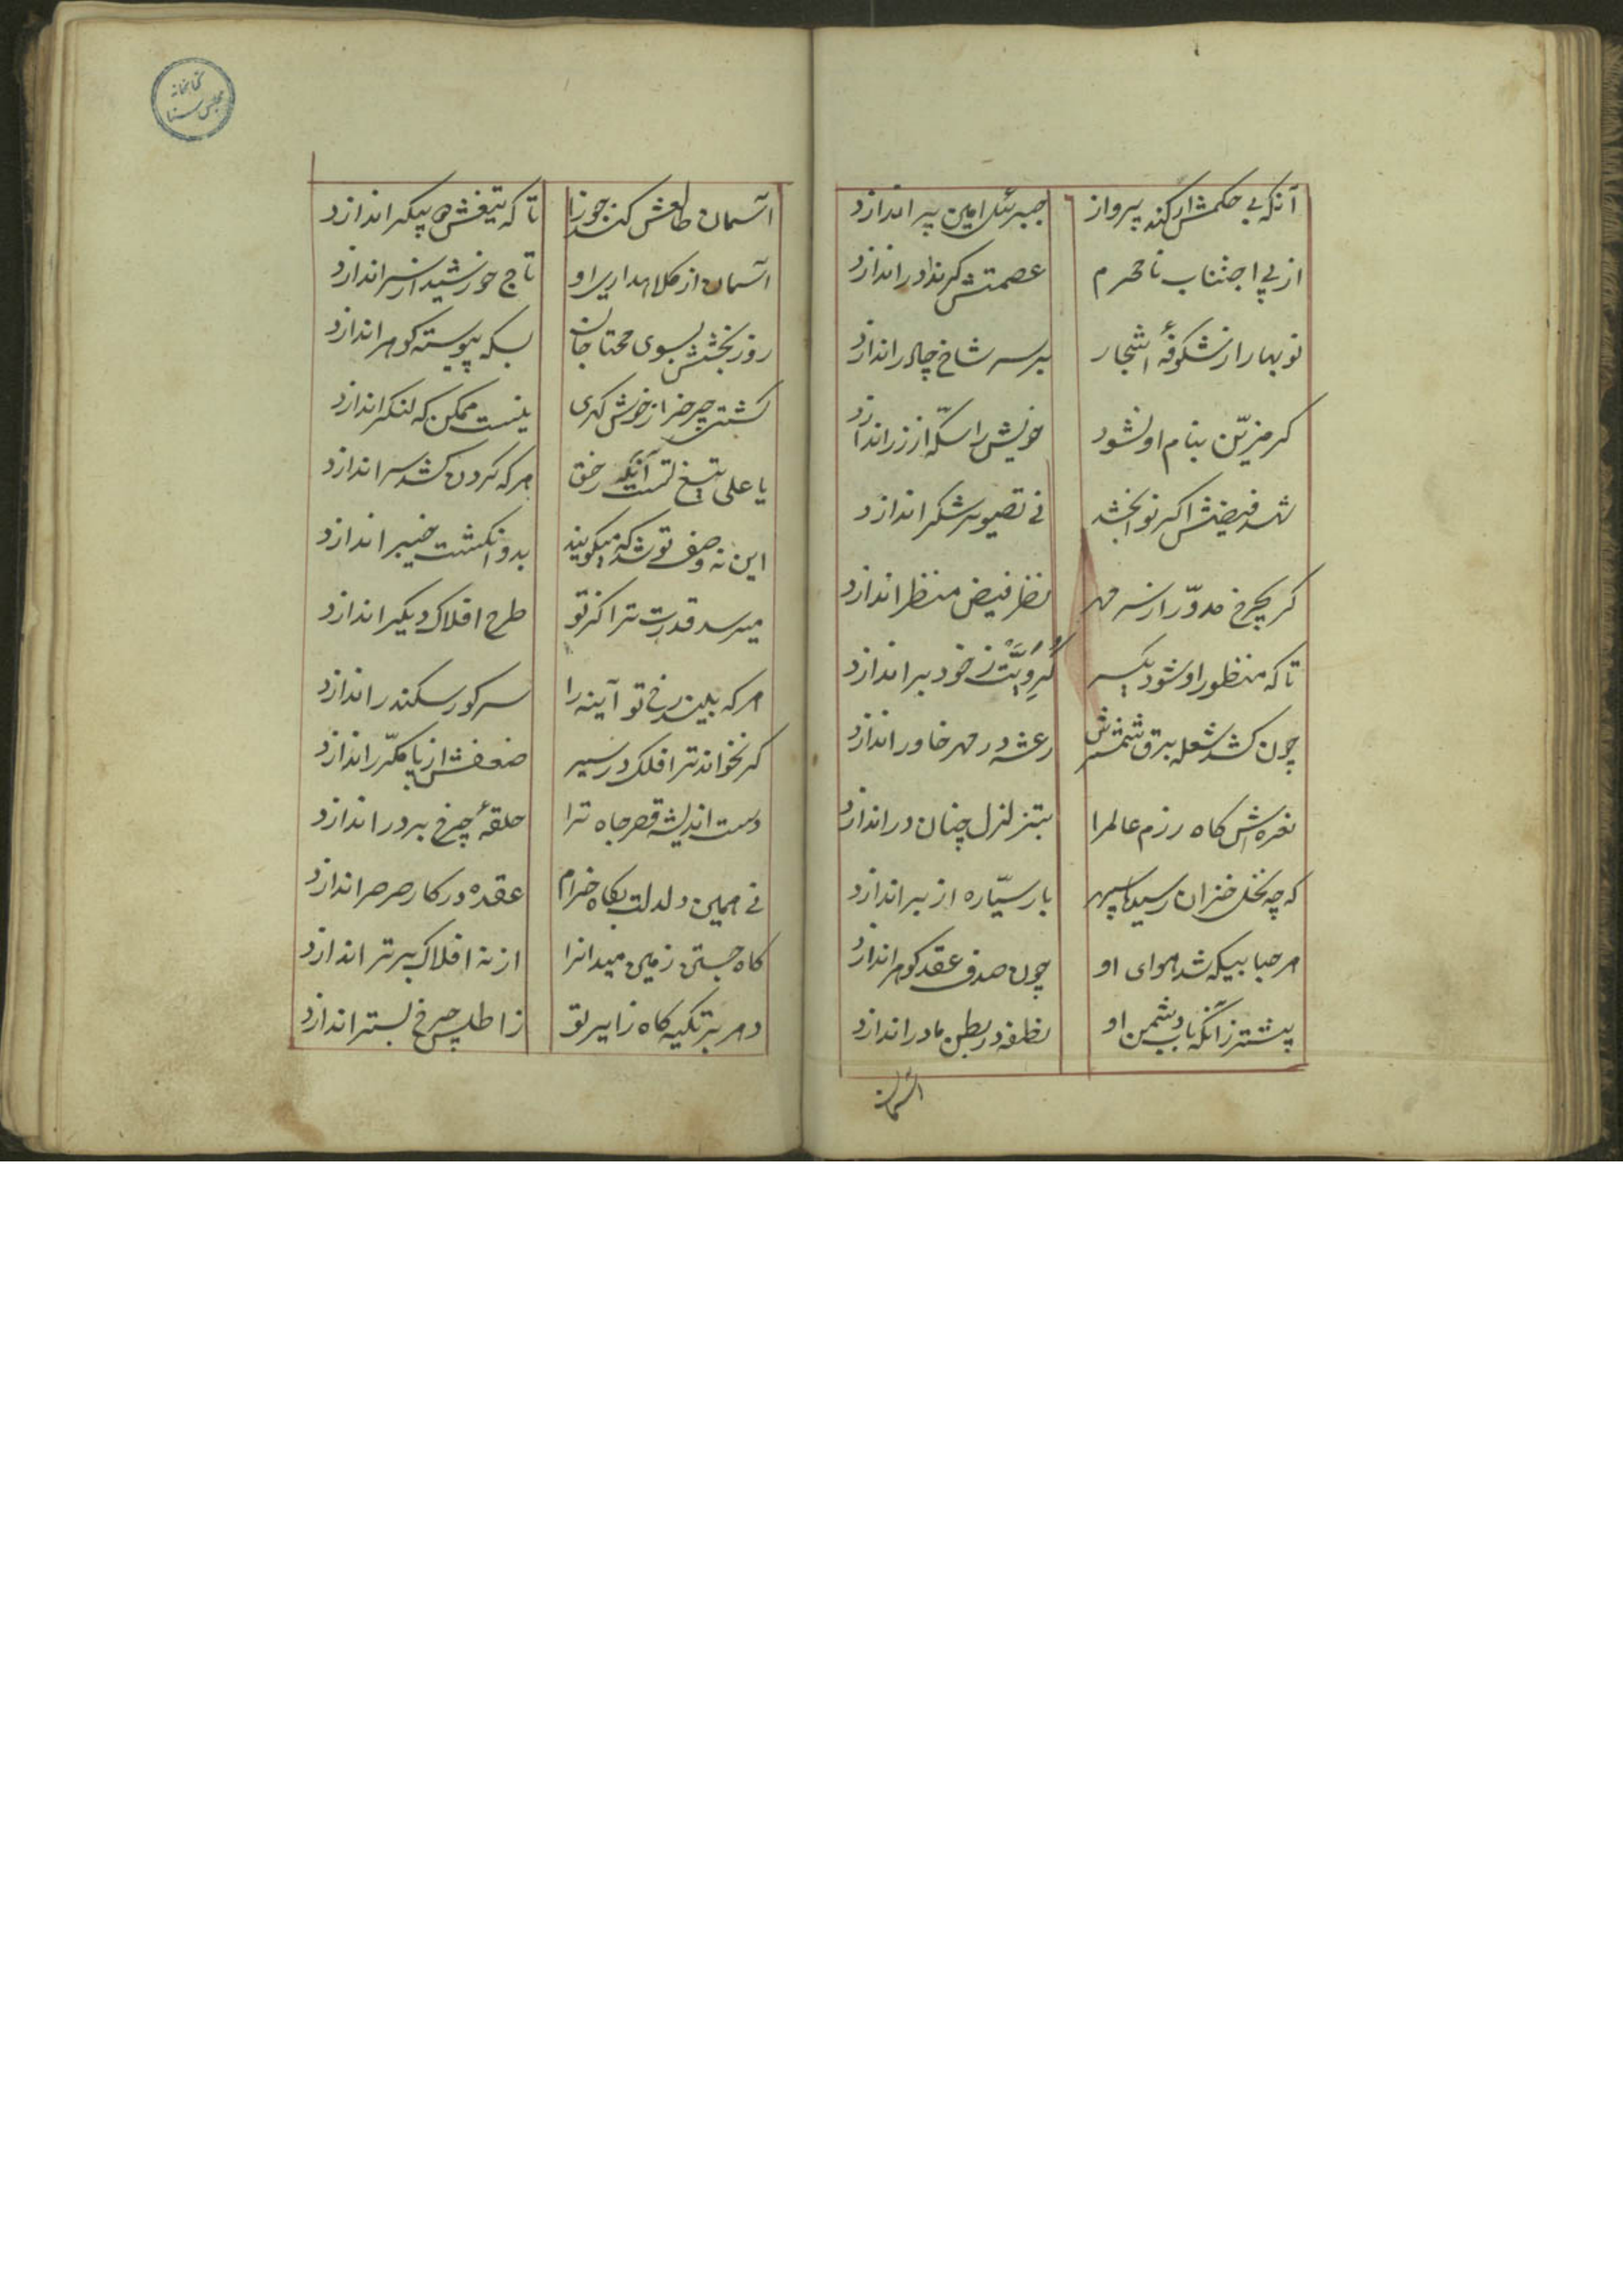 آنکه بی حکمش ار کند پرواز جبرئیل امین پر اندازد
از پی اجتناب نامحرم عصمتش گر ندا در اندازد
نوبهار از شکوفهٔ اشجار بر سر شاخ چادر اندازد
کر مزیّن بنام او نشود خویش را سکّه از زر اندازد
شهد فیضش اکر نوا بخشد نی تصویر شکر اندازد
کر بچرخ مدوّر از سر مهر نظر فیض منظر اندازد
تا که منظور او شود یکسر کرویّت ز خود براندازد
چون کشد شعله برق شمشیرش رعشه در مهر خاور اندازد
نعره‌اش کاه رزم عالمرا بتزلزل چنان در اندازد
که چه نخل خزان رسیده سپهر بار سیّاره از بر اندازد
مرحبا بیکه شد هوای او چون صدف عقد کوهر اندازد
پیشتر زآنکه باب دشمن او نطفه در بطن مادر اندازد
آسمان
آسمان طالعش کند جوزا تا که تیغش دو پیکر اندازد
آسمان از کلاهداری او تاج خورشید از سر اندازد
روز بخشش بسوی محتاجان بسکه پیوسته کوهر اندازد
کشتی چرخ را ز خوش کهری نیست ممکن که لنکر اندازد
یا علی تیغ تست آنکه ز خلق هر که کردن کشد سر اندازد
این نه وصف تو شد که میکویند بدو انکشت خیبر اندازد
میرسد قدرت ترا کز تو طرح افلاک دیکر اندازد
هر که بیند رخ تو آینه را سر کور سکندر اندازد
کر نخواند ترا فلک در سیر ضعفش از پا مکرّر اندازد
دست اندیشه قصر جاه ترا حلقهٔ چرخ بر در اندازد
نی همین دلدلت بکاه خرام عقده در کار صرصر اندازد
کاه جستن زمین میدانرا از نه افلاک برتر اندازد
دهر بر تکیه‌کاه زایر تو ز اطلس چرخ بستر اندازد
کتابخانه
مجلس سنا